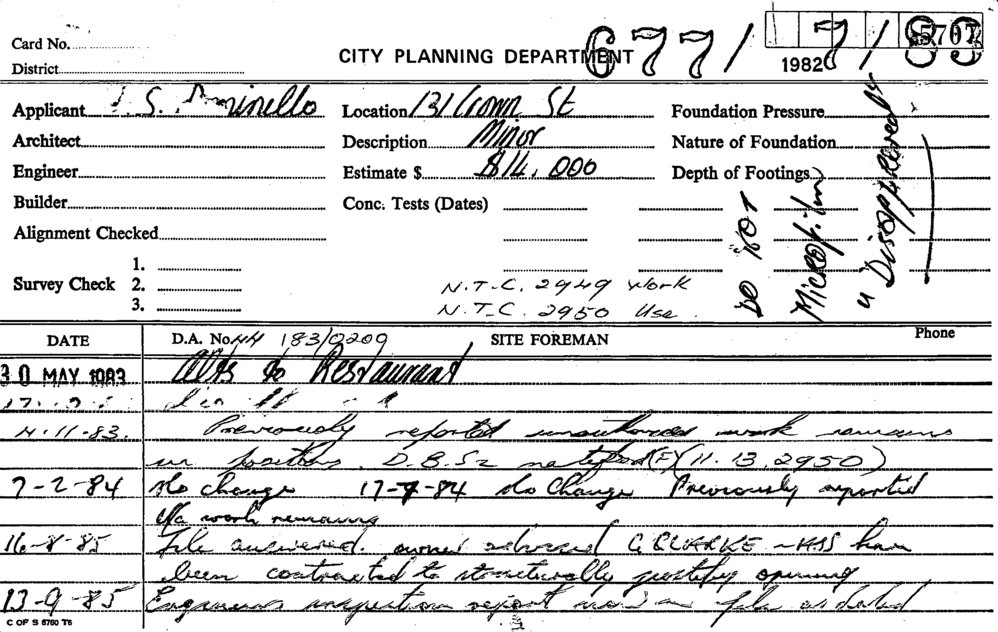 Card No.
District
CITY PLANNING DEPARTMENT
6771 / 83
5707
1982
Applicant S. Location 131 Crown St Foundation Pressure
Architect Description Minor Nature of Foundation
Engineer Estimate $ $14,000 Depth of Footings
Builder Conc. Tests (Dates)
Alignment Checked
Survey Check 1.
2.
3.
N.T.C. 2949 Work
N.T.C. 2950 Use
DO NOT
Microfilm
Disapproved
DATE D.A. No. 44 183/0209 SITE FOREMAN Phone
30 MAY 1983 Alts to Restaurant
4-11-83. Previously reported unauthorised work remains
in position. D.B.S. notified (F) (11.13.2950)
7-2-84 No change 17-7-84 No Change Previously reported
work remains
16-8-85 File answered. owner advised G CLARKE have
been contracted to structurally justify opening
13-9-85 Engineers inspection report now on file as dated
C OF S 6760 T6